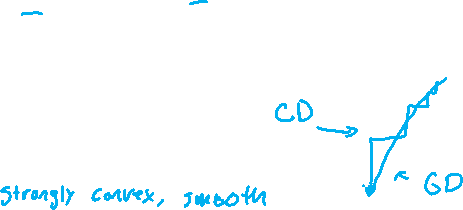 CD
GD
strongly convex, smooth